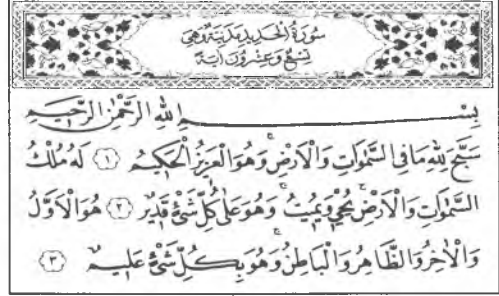 سُورَةُ الْحَدِيدِ مَدَنِيَّةٌ وَهِيَ
تِسْعٌ وَعِشْرُونَ اٰيَةً
بِسْمِ اللّٰهِ الرَّحْمٰنِ الرَّحِيمِ
سَبَّحَ لِلّٰهِ مَا فِي السَّمٰوَاتِ وَالْاَرْضِ وَهُوَ الْعَزِيزُ الْحَكِيمُ ﴿١﴾ لَهُ مُلْكُ
السَّمٰوَاتِ وَالْاَرْضِ يُحْيِ وَيُمِيتُ وَهُوَ عَلٰى كُلِّ شَيْءٍ قَدِيرٌ ﴿٢﴾ هُوَ الْاَوَّلُ
وَالْاٰخِرُ وَالظَّاهِرُ وَالْبَاطِنُ وَهُوَ بِكُلِّ شَيْءٍ عَلِيمٌ ﴿٣﴾